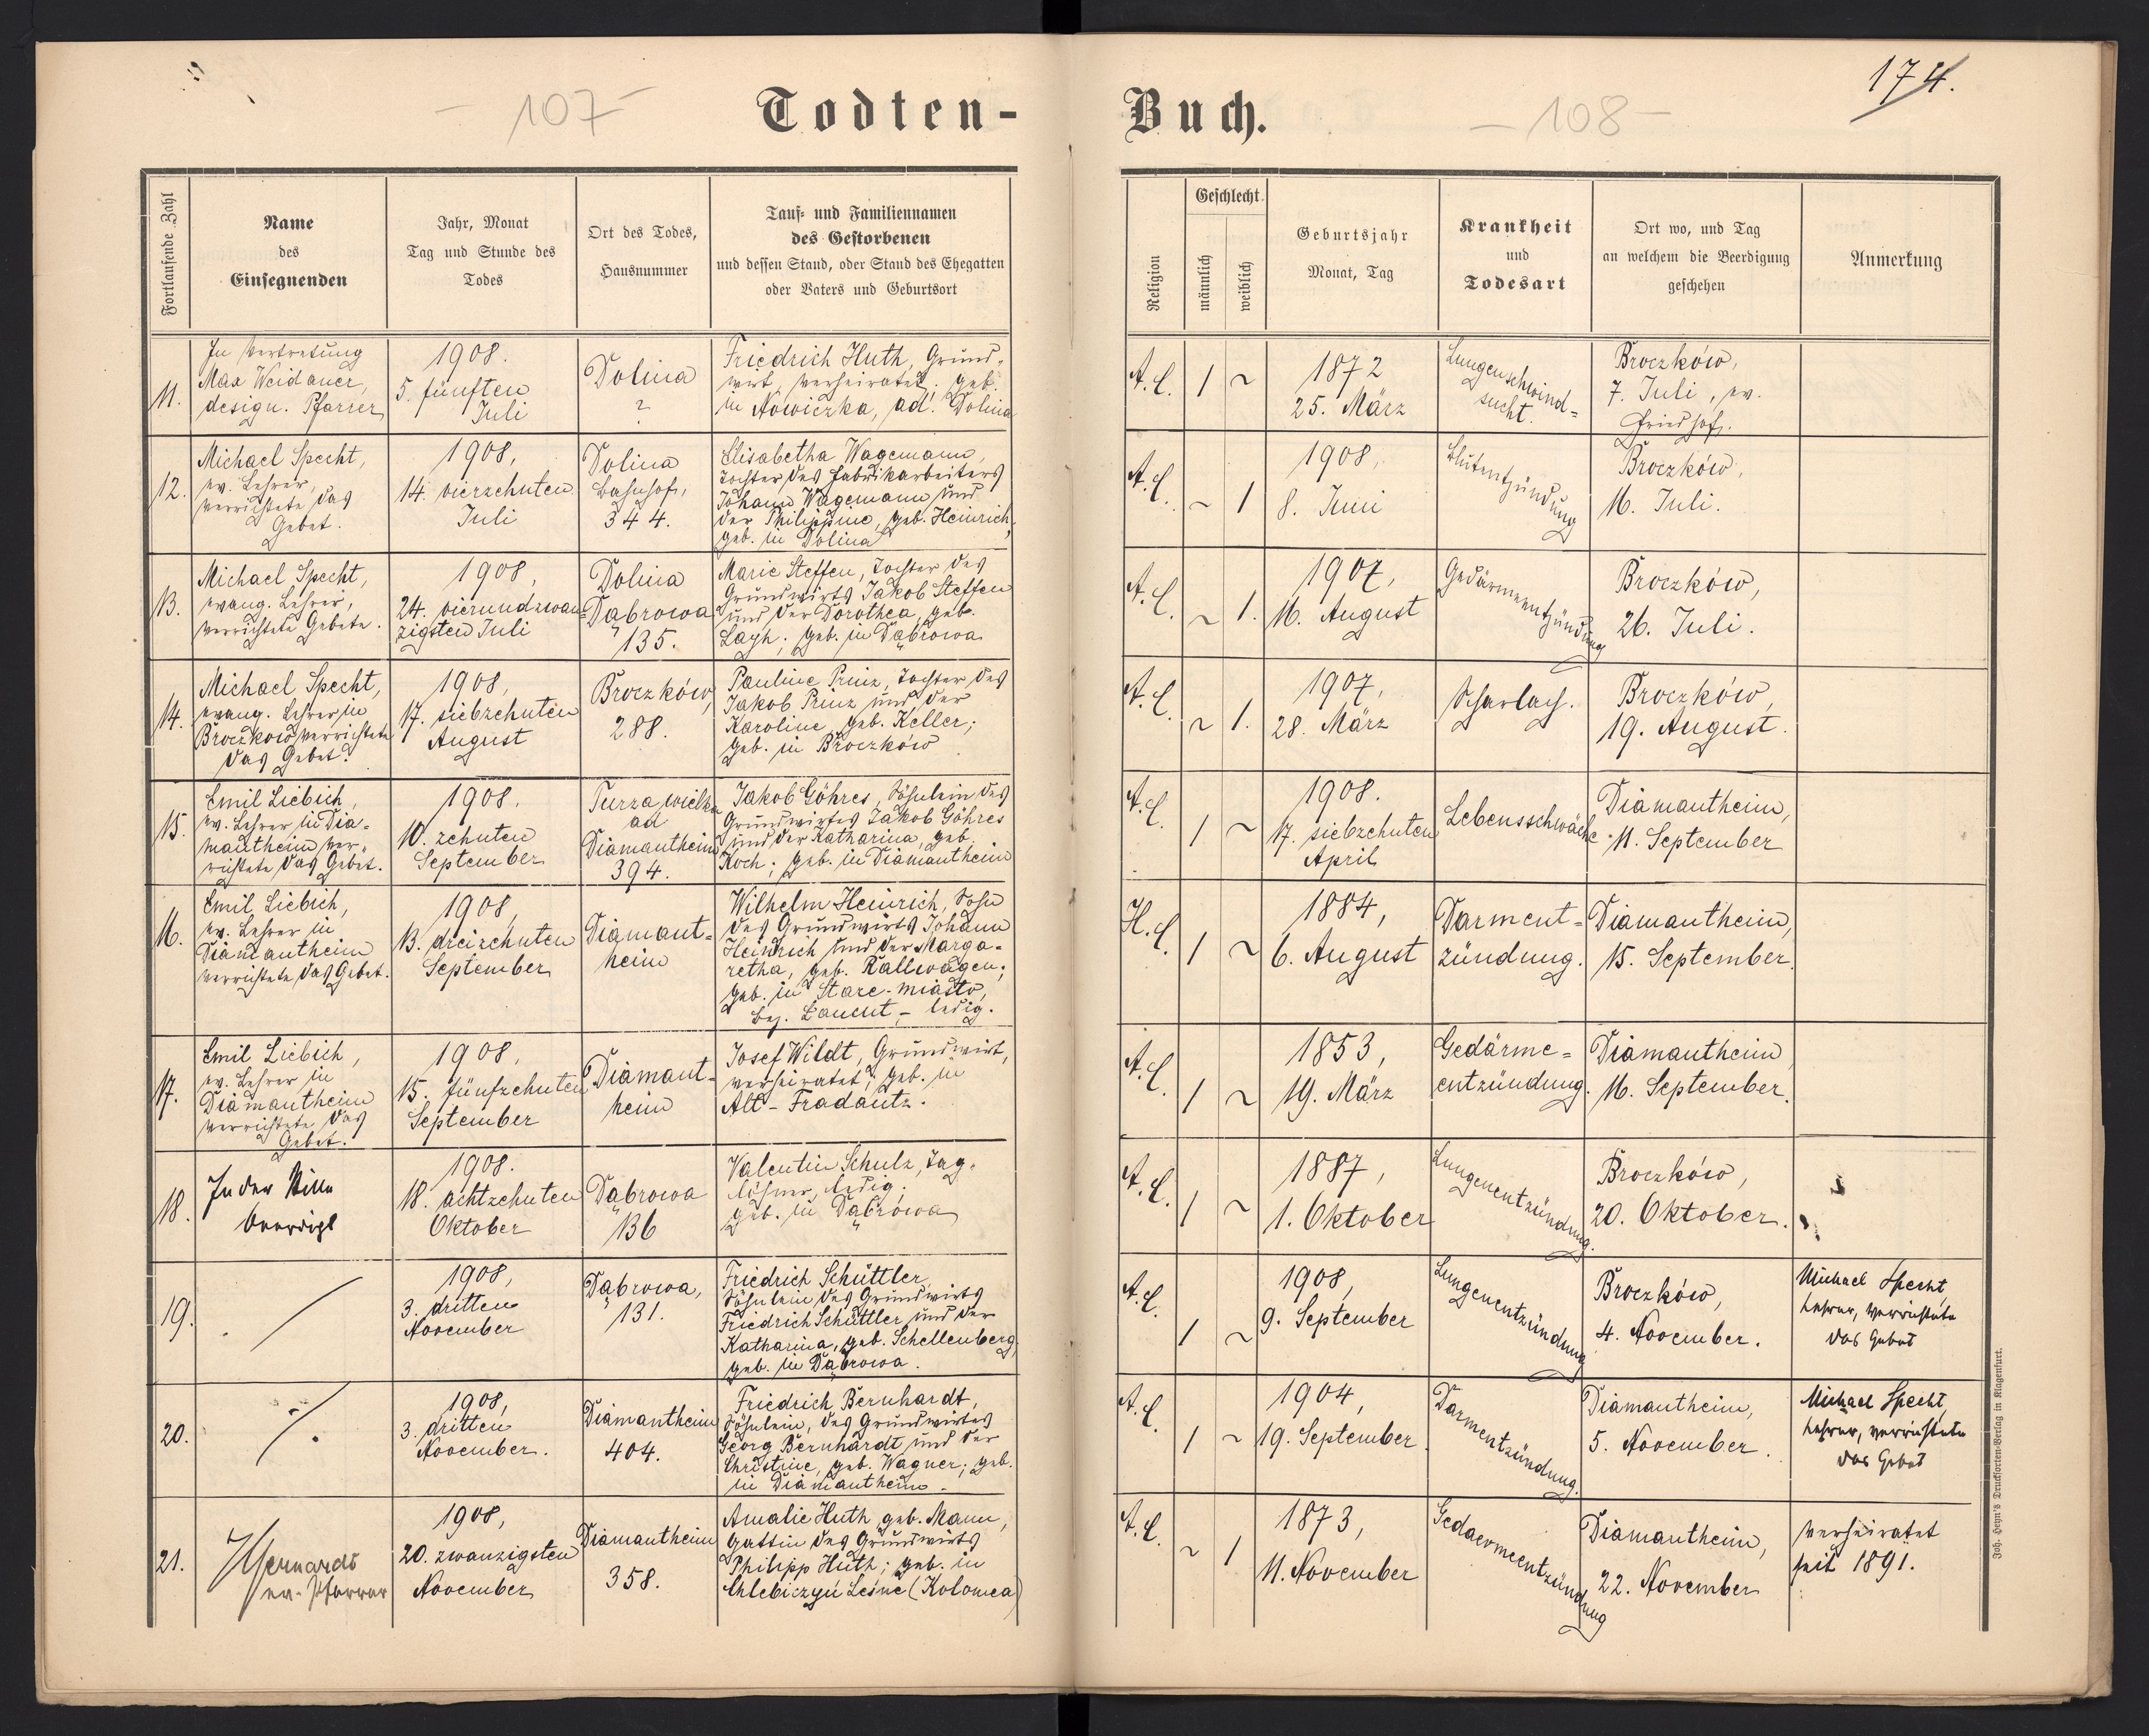 - 107 -
Todten-
Buch.
- 108 -
174.
Fortlaufende Zahl
Name
des
Einsegnenden
Jahr, Monat
Tag und Stunde des
Todes
Ort des Todes,
Hausnummer
Tauf- und Familiennamen
des Gestorbenen
und dessen Stand, oder Stand des Ehegatten
oder Vaters und Geburtsort
Religion
Geschlecht
männlich
weiblich
Geburtsjahr
Monat, Tag
Krankheit
und
Todesart
Ort wo, und Tag
an welchem die Beerdigung
geschehen
Anmerkung
11.
In Vertretung
Max Weidauer,
design. Pfarrer
1908.
5. fünften
Juli
Dolina
?
Friedrich Huth, Grund-
wirt, verheiratet; geb.
in Nowiczka, ad. Dolina
A.C.
1
~
1872
25. März
Lungenschwind-
sucht.
Broczków,
7. Juli, ev.
Friedhof.
12.
Michael Specht,
ev. Lehrer,
verrichtete das
Gebet.
1908,
14. vierzehnten
Juli
Dolina
Bahnhof,
344.
Elisabetha Wagemann,
Tochter des Fabrikarbeiters
Johann Wagemann und
der Philippine, geb. Heinrich;
geb. in Dolina
A.C.
~
1
1908,
8. Juni
Blutentzündung
Broczków,
16. Juli.
13.
Michael Specht,
evang. Lehrer,
verrichtete Gebete.
1908,
24. vierundzwan-
zigsten Juli
Dolina
Dąbrowa
135.
Marie Steffen, Tochter des
Grundwirts Jakob Steffen
und der Dorothea, geb.
Layh; geb. in Dąbrowa
A.C.
~
1.
1907,
16. August
Gedärmeentzündung
Broczków,
26. Juli.
14.
Michael Specht,
evang. Lehrer in
Broczków verrichtete
das Gebet.
1908,
17. siebzehnten
August
Broczków,
288.
Pauline Prinz, Tochter des
Jakob Prinz und der
Karoline, geb. Keller;
geb. in Broczków
A.C.
~
1.
1907,
28. März
Scharlach.
Broczków,
19. August.
15.
Emil Liebich,
ev. Lehrer in Dia-
mantheim ver-
richtete das Gebet.
1908.
10. zehnten
September
Turza wielka
ad
Diamantheim
394.
Jakob Göhres, Söhnlein des
Grundwirtes Jakob Göhres
und der Katharina, geb.
Koch; geb. in Diamantheim
A.C.
1
~
1908.
17. siebzehnten
April
Lebensschwäche
Diamantheim,
11. September
16.
Emil Liebich,
ev. Lehrer in
Diamantheim
verrichtete das Gebet.
1908,
13. dreizehnten
September
Diamant-
heim
Wilhelm Heinrich, Sohn
des Grundwirts Johann
Heinrich und der Marga-
retha, geb. Kallwagen;
geb. in Stare-miasto,
Bez. Lancut, - ledig.
H.C.
1
~
1884,
6. August
Darment-
zündung.
Diamantheim,
15. September.
17.
Emil Liebich,
ev. Lehrer in
Diamantheim
verrichtete das
Gebet.
1908,
15. fünfzehnten
September
Diamant-
heim
Josef Wildt, Grundwirt,
verheiratet; geb. in
Alt-Fradautz.
A.C.
1
~
1853,
19. März
Gedärme-
entzündung.
Diamantheim,
16. September.
18.
In der Stille
beerdigt
1908.
18. achtzehnten
Oktober
Dąbrowa
136
Valentin Schulz, Tag-
löhner, ledig;
geb. in Dąbrowa
A.C.
1
~
1887,
1. Oktober
Lungenentzündung.
Broczków,
20. Oktober.
19.
1908,
3. dritten
November
Dąbrowa,
131.
Friedrich Schüttler,
Söhnlein des Grundwirts
Friedrich Schüttler und der
Katharina, geb. Schellenberg,
geb. in Dąbrowa.
A.C.
1
~
1908,
9. September
Lungenentzündung
Broczków,
4. November.
Michael Specht,
Lehrer, verrichtete
das Gebet
20.
1908,
3. dritten
November.
Diamantheim
404.
Friedrich Bernhardt,
Söhnlein, des Grundwirtes
Georg Bernhardt und der
Christine, geb. Wagner; geb.
in Diamantheim.
A.C.
1
~
1904,
19. September.
Darmentzündung.
Diamantheim,
5. November.
Michael Specht,
Lehrer, verrichtete
das Gebet
21.
ev. Pfarrer
1908,
20. zwanzigsten
November
Diamantheim
358.
Amalie Huth geb. Mann,
Gattin des Grundwirts
Philipp Huth; geb. in
Chlebiczyn Lesne (Kolomea)
A.C.
~
1
1873,
11. November
Gedaermeentzündung
Diamantheim,
22. November
verheiratet
seit 1891.
Joh. Heyn's Drucksorten-Verlag in Klagenfurt.